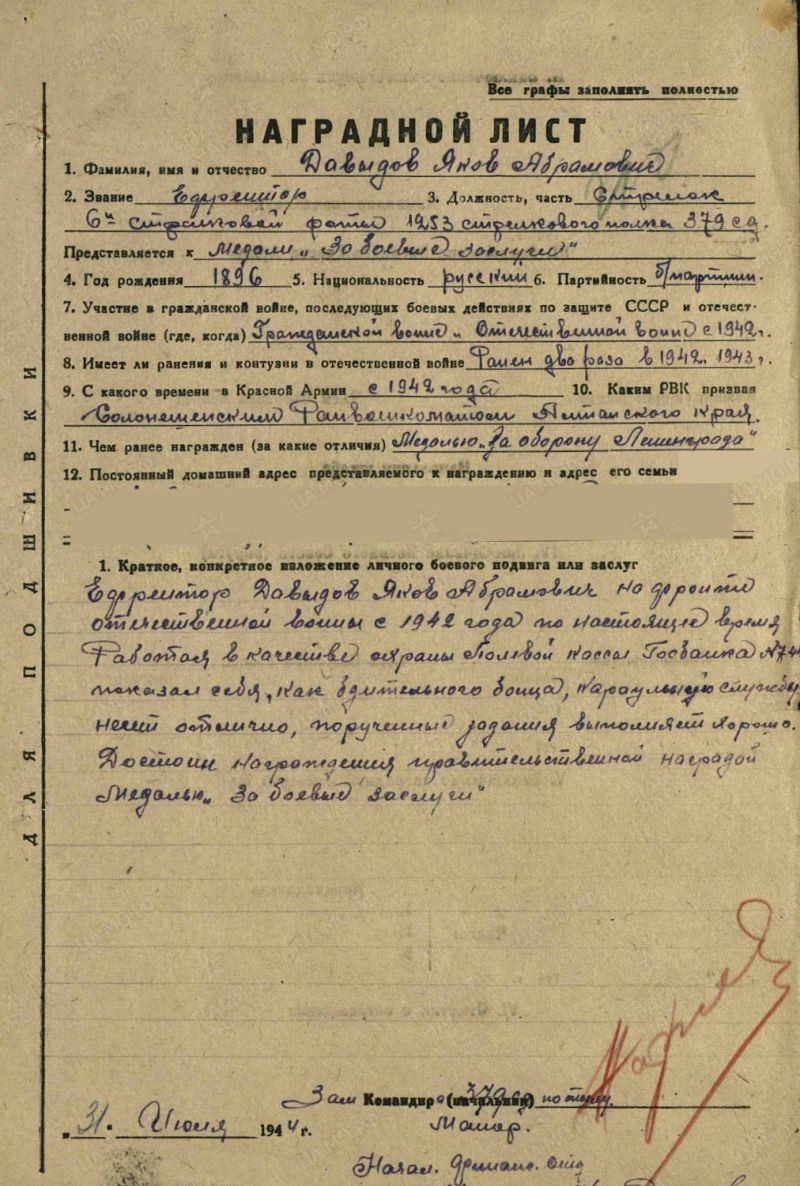 Все графы заполнять полностью
НАГРАДНОЙ ЛИСТ
1. Фамилия, имя и отчество Давыдов Яков Абрамович
2. Звание Ефрейтор 3. Должность, часть Стрелок
6й стрелковой роты 1253 стрелкового полка 379 сд.
Представляется к Медали „За боевые заслуги“
4. Год рождения 1896 5. Национальность русский 6. Партийность б/партийн.
7. Участие в гражданской войне, последующих боевых действиях по защите СССР и отечест-
венной войне (где, когда) Гражданской войне и Отечественной войне с 1942г.
8. Имеет ли ранения и контузии в отечественной войне Ранен два раза в 1942. 1943 г.
9. С какого времени в Красной Армии с 1942 года 10. Каким РВК призван
Солонешенским Райвоенкоматом Алтайского края.
11. Чем ранее награжден (за какие отличия) Медалью „За оборону Ленинграда“
12. Постоянный домашний адрес представляемого к награждению и адрес его семьи
1. Краткое, конкретное изложение личного боевого подвига или заслуг
Ефрейтор Давыдов Яков Абрамович на фронте
отечественной войны с 1942 года по настоящее время
Работая в качестве охраны Полевой кассы Госбанка №
показал себя, как бдительного бойца, караульную службу
несет отлично, порученные задания выполняет хорошо.
Достоин награждения правительственной наградой
Медалью „За боевые заслуги“
Зам Командира (начальник) 379 сд по тылу
„31“ Июля 1944 г. Майор.
Начал. Финанс. отд
ДЛЯ ПОДШИВКИ